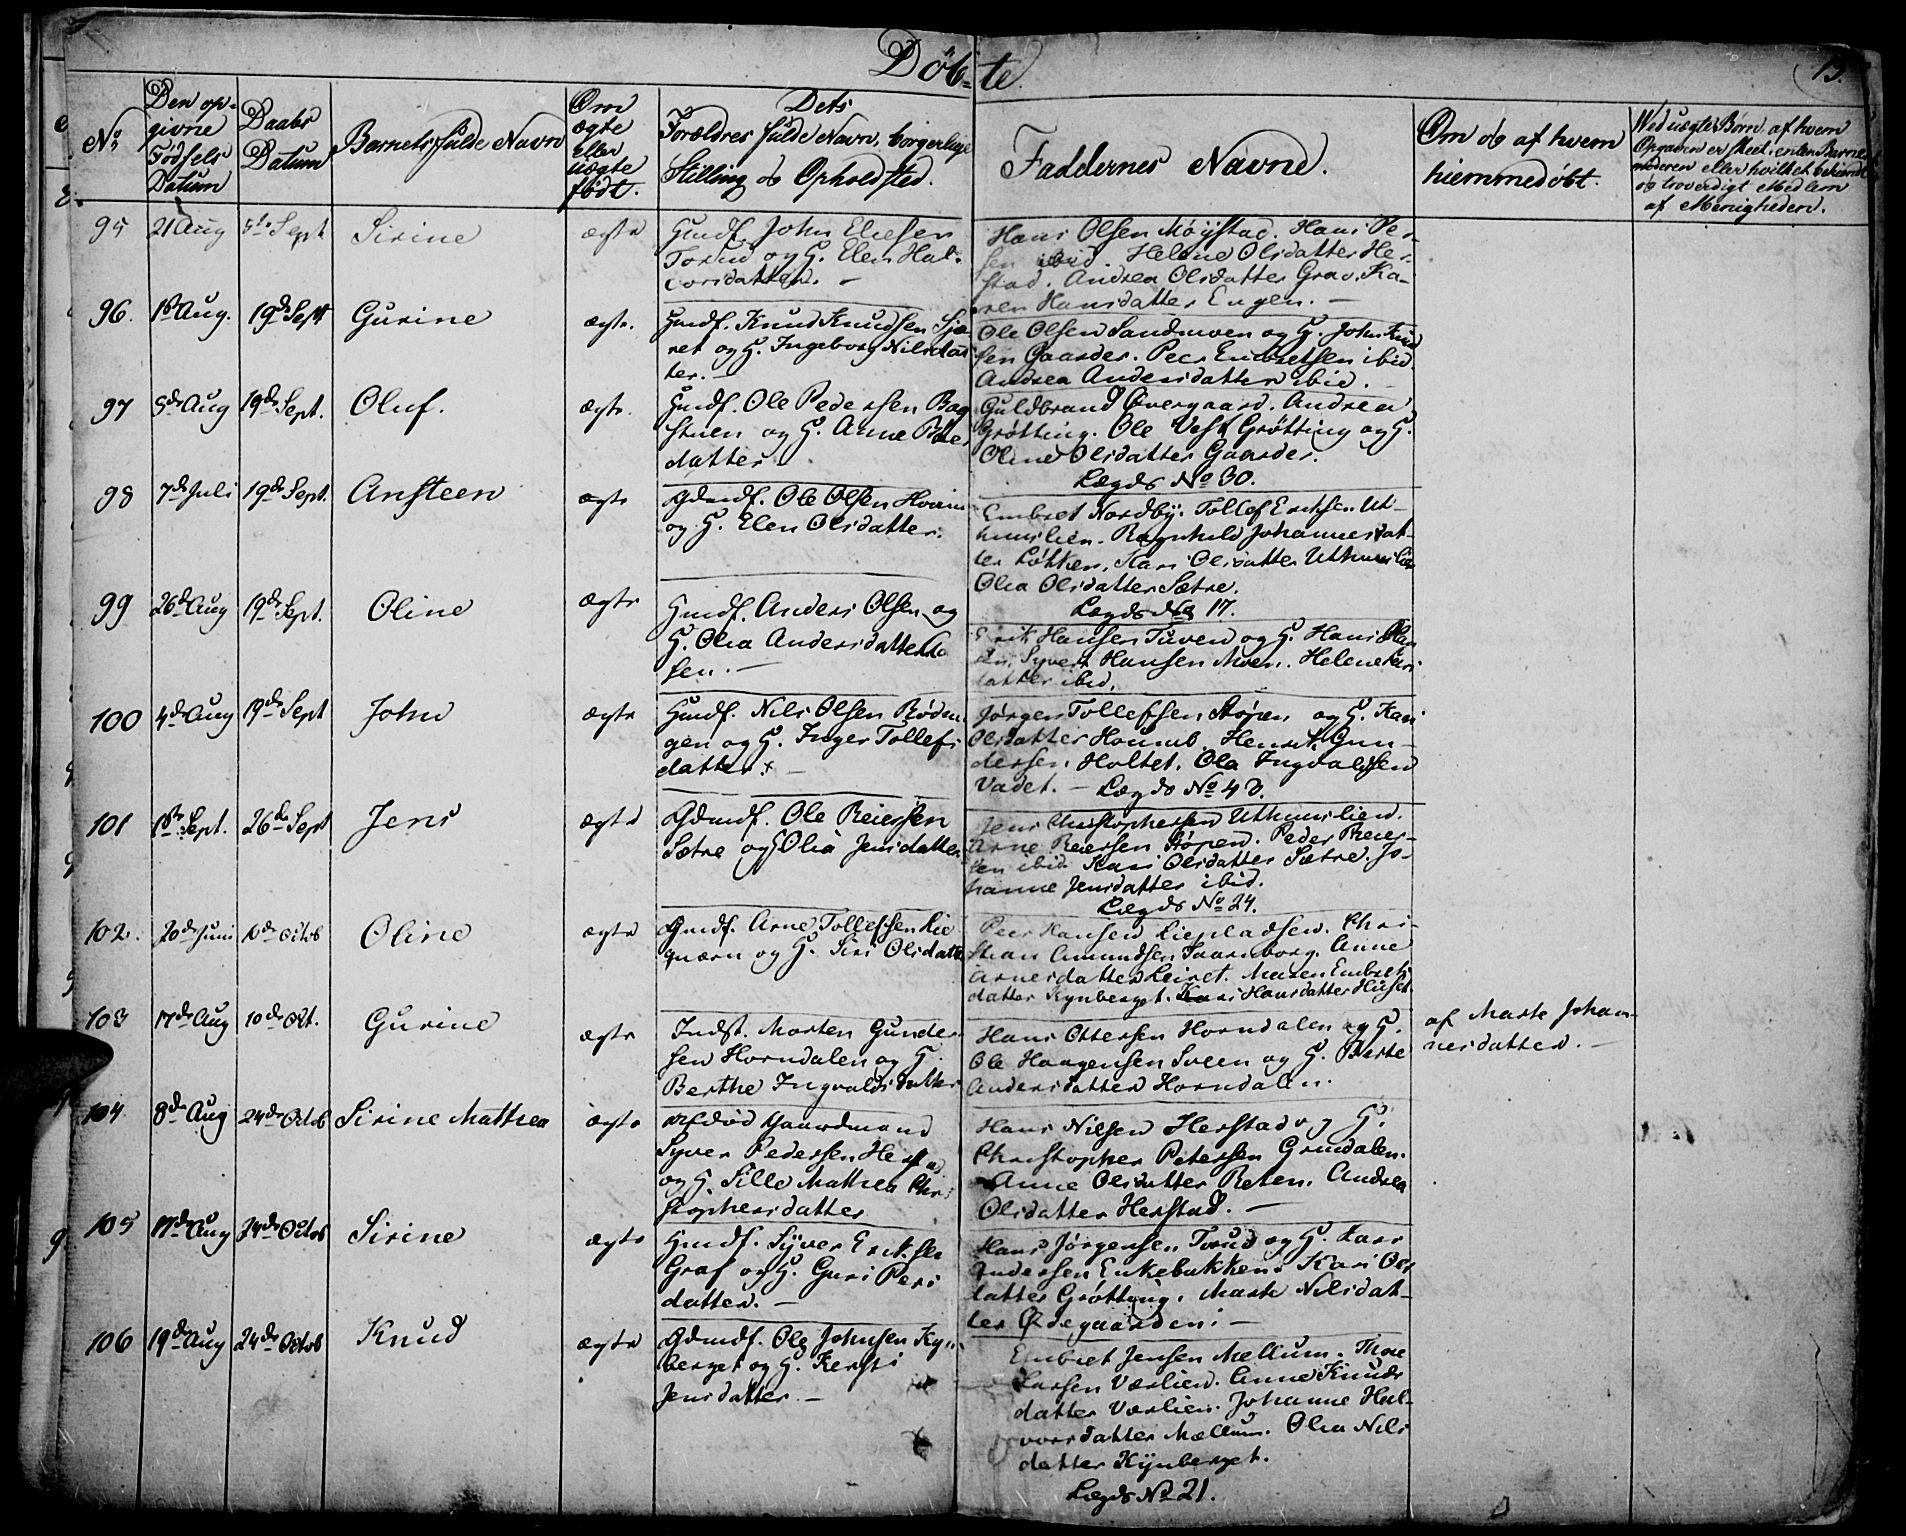 Döb-te.
13.
No
Den op-
givne
Födsels
Datum
Daabs
Datum
Barnets fulde Navn
Om
ægte
eller
uægte
født.
Dets
Forældres fulde Navn, borgerlige
Stilling og Opholdsted.
Faddernes Navne.
Om og af hvem
hiemmedøbt.
Ved uægte Børn, af hvem
Opgaven er skeet, enten Barne-
moderen eller hvilket bekiendt
og troverdigt Medlem
af Menigheden.
95 21 Aug 5te Sept Sirine ægte
Gmdf. John Eliesen
Torud og H. Elen Hal-
vorsdatter. -
Hans Olsen Møystad. Hans Per-
sen ibid. Helene Olsdatter Her-
stad. Andrea Olsdatter Grav. Ka-
ren Hansdatter Engen. -
96. 1st Aug. 19de Sept Gurine ægte.
Gmdf. Knud Knudsen Sjø-
ret og H. Ingeborg Nilsdat-
ter. -
Ole Olsen Sandmoen og H. John Knud
sen Gaarder. Peer Embretsen ibid.
Andrea Andersdatter ibid. -
97 5de Aug 19de Sept. Oluf. ægte.
Gmdf. Ole Pedersen Bag
stuen og H. Anne Peders
datter.
Guldbrand Øvergaard. Andrea
Grøtting. Ole Vest Grøtting og H.
Oline Olsdatter Gaarder.
Lægds No 30.
98 7de Juli 19de Sept. Ansteen ægte
Gdmdf. Ole Olsen Horim
og H. Elen Olsdatter.
Embret Nordby. Tollef Eriksen Ut-
huuslien. Ragnhild Johannesdat-
ter Løkken. Kari Olsdatter Uthuuslien
Olia Olsdatter Sætre.
Lægds No 17.
99 26de Aug 19de Sept. Oline ægte
Gmdf. Anders Olsen og
H. Olia Andersdatter
sen. -
Erik Hansen Tuven og H. Hans Han
sen, Syver Hansen Moen. Helene Pers
datter ibid.
100 4de Aug 19de Sept John ægte
Gmdf. Nils Olsen Røden
gen og H. Inger Tollefs
datter. -
Jørgen Tollefsen Støpen og H. Kari
Olsdatter Houmb. Henrik Gun-
dersen Holtet. Ola Ingvaldsen
Vadet. - Lægds No 43.
101 1ste Sept. 26de Sept Jens ægte
Gdmdf. Ole Reiersen
Sætre og H. Olia Jensdatter
Jens Christophersen Uthuuslien.
Arne Reiersen Støpen. Peder Reier-
sen ibid. Kari Olsdatter Sætre. Jo-
hanne Jensdatter ibid.
Lægds No 24.
102. 20de Juni 10de Octob Oline ægte
Gmdf. Arne Tollefsen Lie
qværn og H. Siri Olsdatter
Peer Hansen Liepladsen. Chri-
stian Amundsen Taarnborg. Anne
Arnesdatter Leiret. Maren Embrets
datter Kynberget. Kari Hansdatter Huset.
103 17de Aug 10de Oct. Gurine ægte
Indst. Morten Gunder-
sen Horndalen og H.
Berthe Ingvaldsdatter
Hans Ottersen Horndalen og H.
Ole Haagensen Sveen og H. Berte
Andersdatter Horndalen.
af Marte Johan-
nesdatter. -
104 8de Aug 24de Octob Sirine Mathea ægte
Afdød Gaardmand
Syver Pedersen Herstad
og H. Sille Mathea Chri-
stophersdatter
Hans Nilsen Herstad og H.
Christopher Petersen Grundalen.
Anne Olsdatter Reten. Andrea
Olsdatter Herstad. -
105 17de Aug 24de Octob Sirine ægte
Gmdf. Syver Eriksen
Graf og H. Guri Pers
datter. -
Hans Jørgensen Torud og H. Lars
Andersen Enkebakken. Kari Ols
datter Grøtting. Marte Nilsdat-
ter Ødegaarden. -
106 19de Aug 24de Octob Knud ægte
Gdmdf. Ole Johnsen Kyn-
berget og H. Kersti
Jensdatter. -
Embret Jensen Mellum. Thore
Larsen Værlien. Anne Knuds
datter Værlien. Johanne Hal-
vorsdatter Mællum. Olia Nils
datter Kynberget.
Lægds No 21.